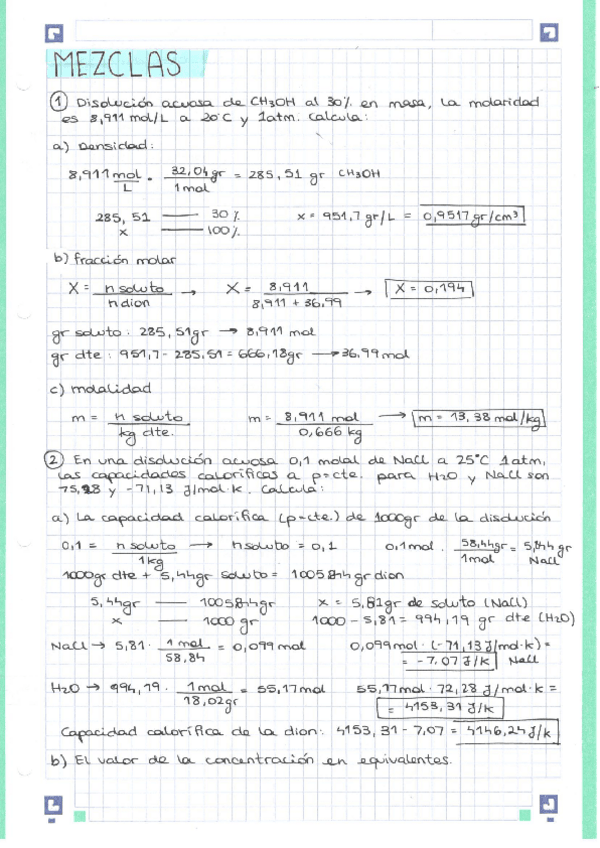 MEZCLAS
① Disolución acuosa de CH3OH al 30% en masa, la molaridad
es 8,911 mol/L a 20°C y 1atm. Calcula:
a) Densidad:
8,911 mol/L · 32,04gr/1mol = 285,51 gr CH3OH
285,51 — 30%
x — 100%
x = 951,7 gr/L = 0,9517 gr/cm³
b) fracción molar
X = n soluto/n dion → X = 8,911/8,911 + 36,99 → X = 0,194
gr soluto: 285,51gr → 8,911 mol
gr dte: 951,7 - 285,51 = 666,18gr → 36,99 mol
c) molalidad
m = n soluto/kg dte. m = 8,911 mol/0,666 kg → m = 13,38 mol/kg
② En una disolución acuosa 0,1 molal de NaCl a 25°C 1atm,
las capacidades caloríficas a p=cte. para H2O y NaCl son
75,28 y -71,13 J/mol·k. Calcula:
a) La capacidad calorífica (p=cte.) de 1000gr de la disolución
0,1 = n soluto/1kg → n soluto = 0,1 0,1mol · 58,44gr/1mol = 5,844 gr NaCl
1000gr dte + 5,44gr soluto = 1005'844 gr dion
5,44gr — 1005'844gr
x — 1000 gr
x = 5,81gr de soluto (NaCl)
1000 - 5,81 = 994,19 gr dte (H2O)
NaCl → 5,81 · 1mol/58,84 = 0,099mol 0,099mol · (-71,13 J/mol·k) =
= -7,07 J/k NaCl
H2O → 994,19 · 1mol/18,02gr = 55,17mol 55,17mol · 72,28 J/mol·k =
= 4153,31 J/k
Capacidad calorífica de la dion: 4153,31 - 7,07 = 4146,24 J/k
b) El valor de la concentración en equivalentes.